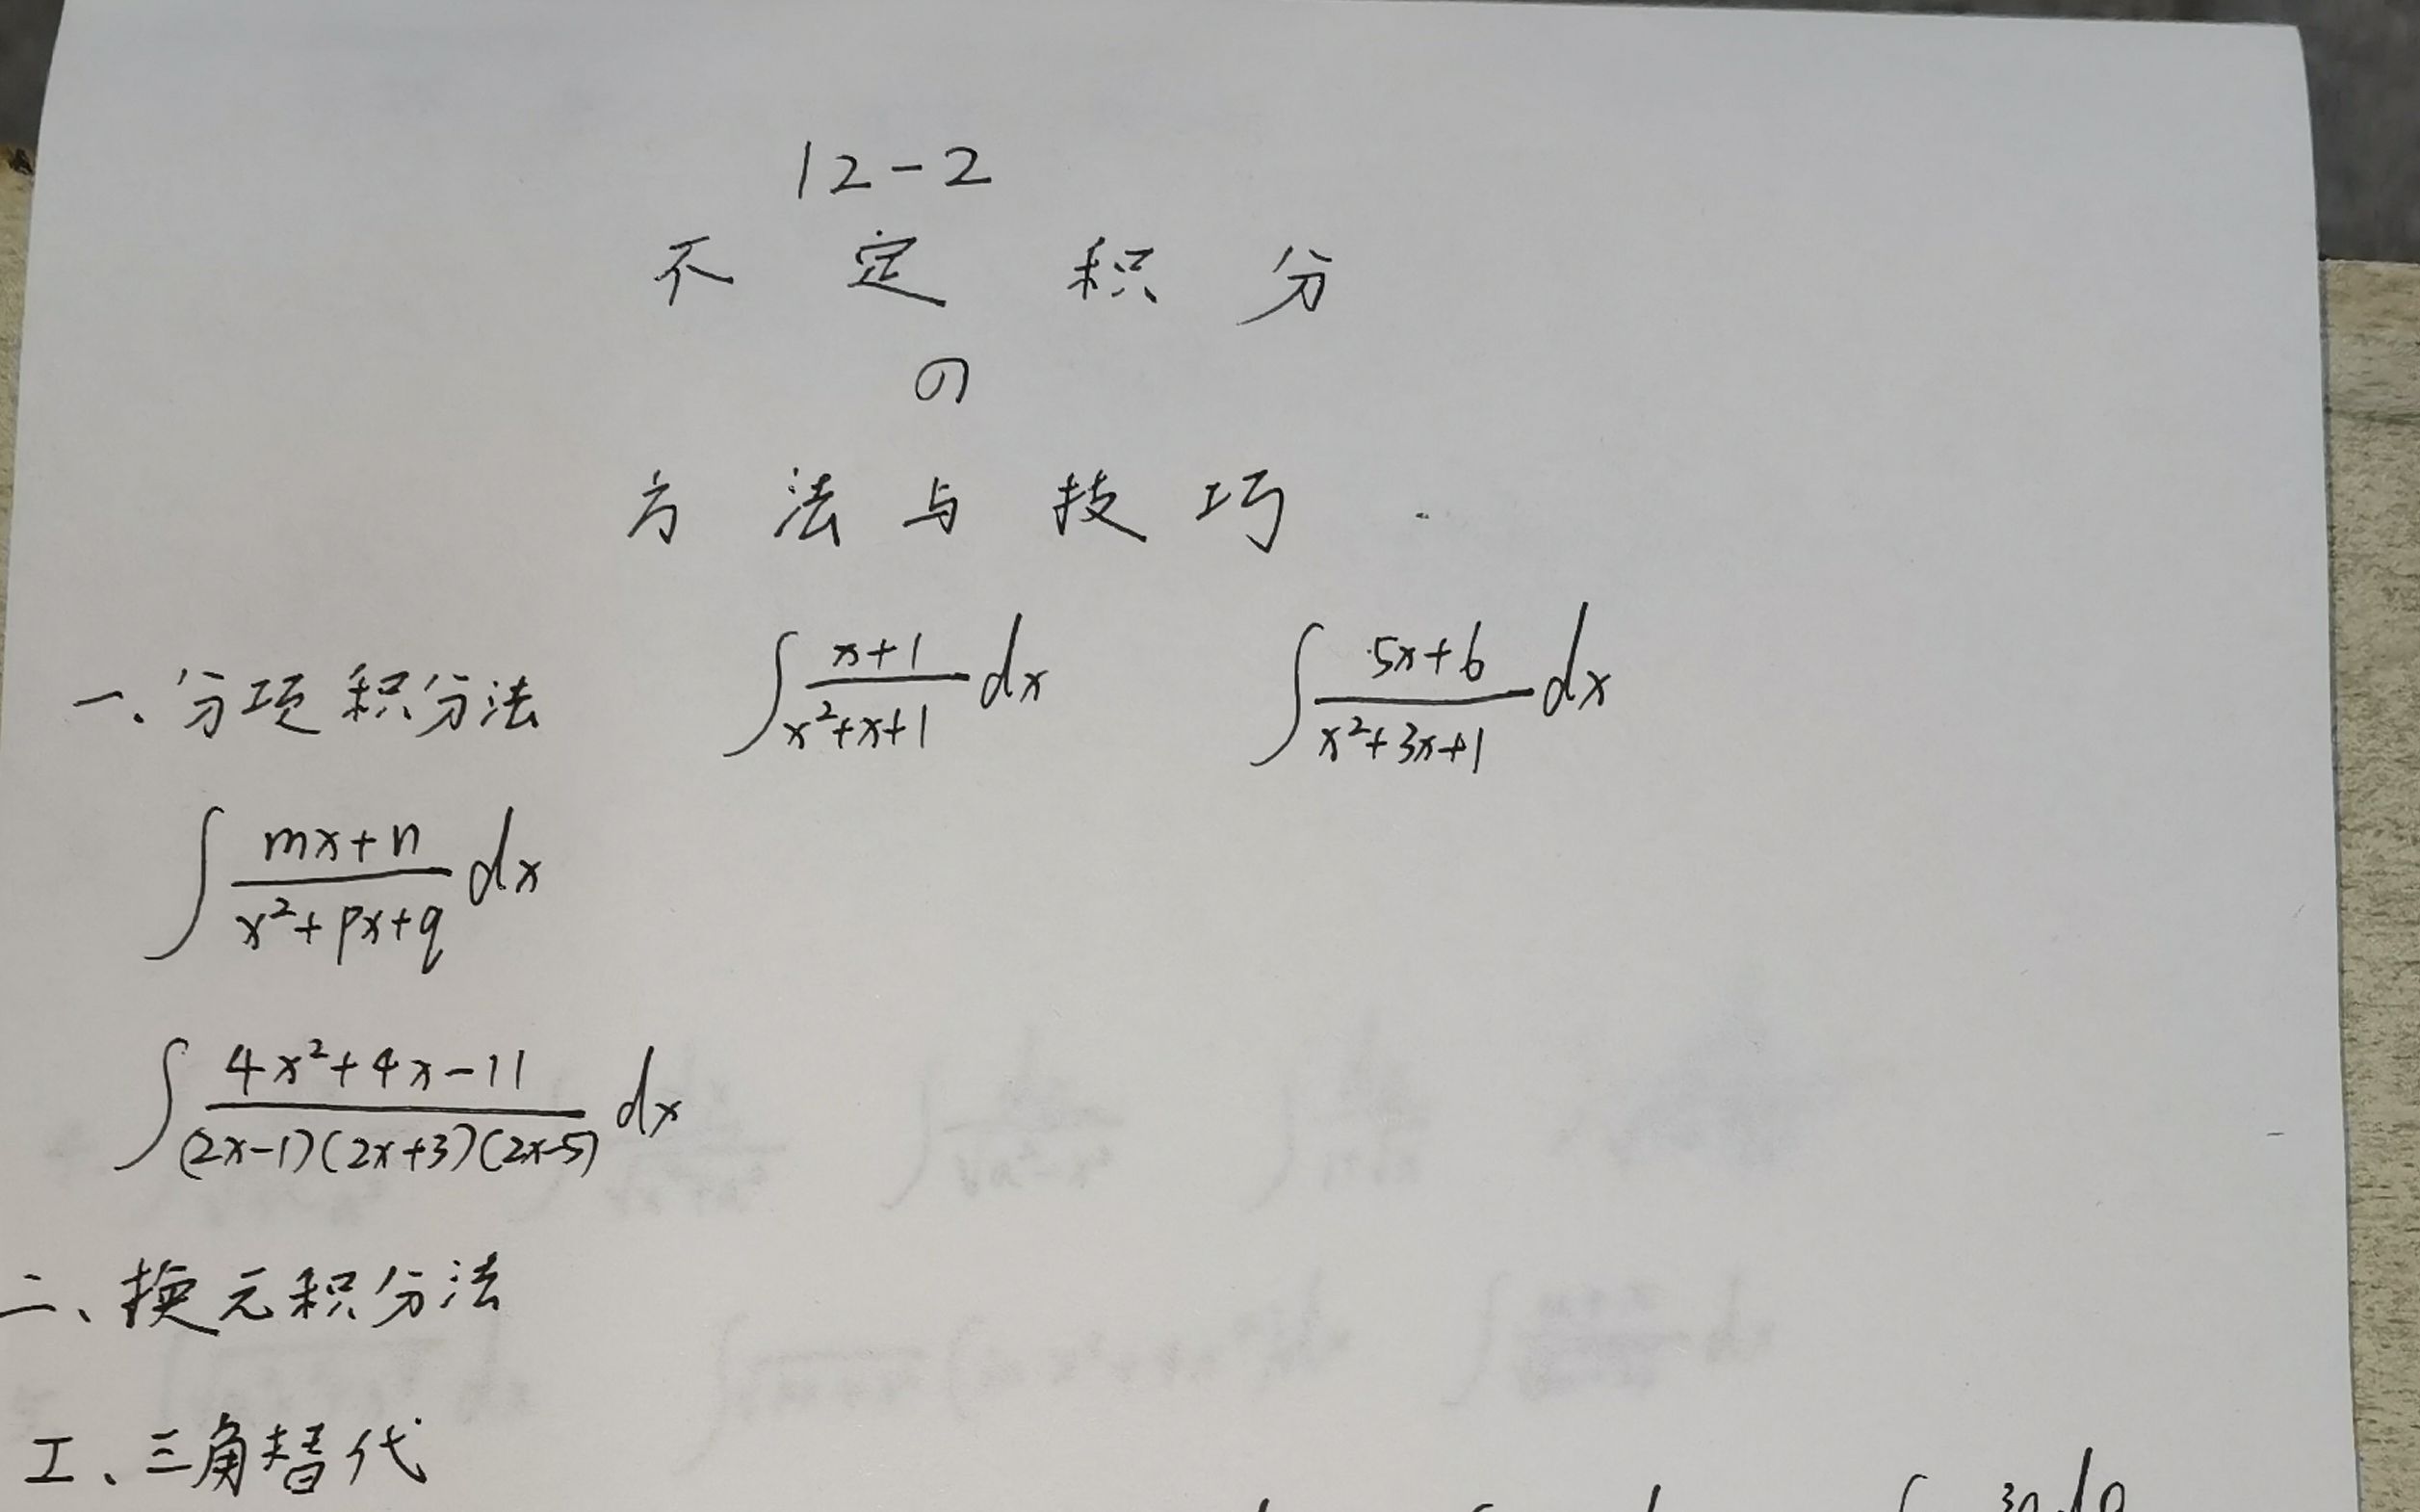 12-2
不定积分
の
方法与技巧
一、分项积分法 ∫ (x+1)/(x²+x+1) dx ∫ (5x+6)/(x²+3x+1) dx
∫ (mx+n)/(x²+px+q) dx
∫ (4x²+4x-11)/((2x-1)(2x+3)(2x-5)) dx
二、换元积分法
I、三角替代